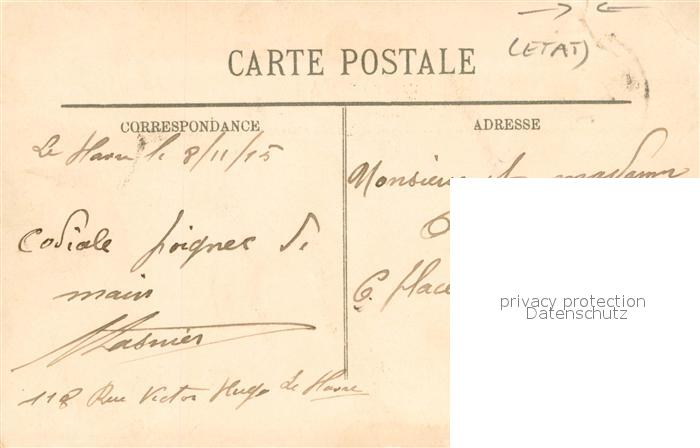 (ETAT)
CARTE POSTALE
CORRESPONDANCE
ADRESSE
Le Havre le 8/11/15
Codiale poignee de
main
Lasnier
118 Rue Victor Hugo Le Havre
Monsieur et madame
6 place
privacy protection
Datenschutz